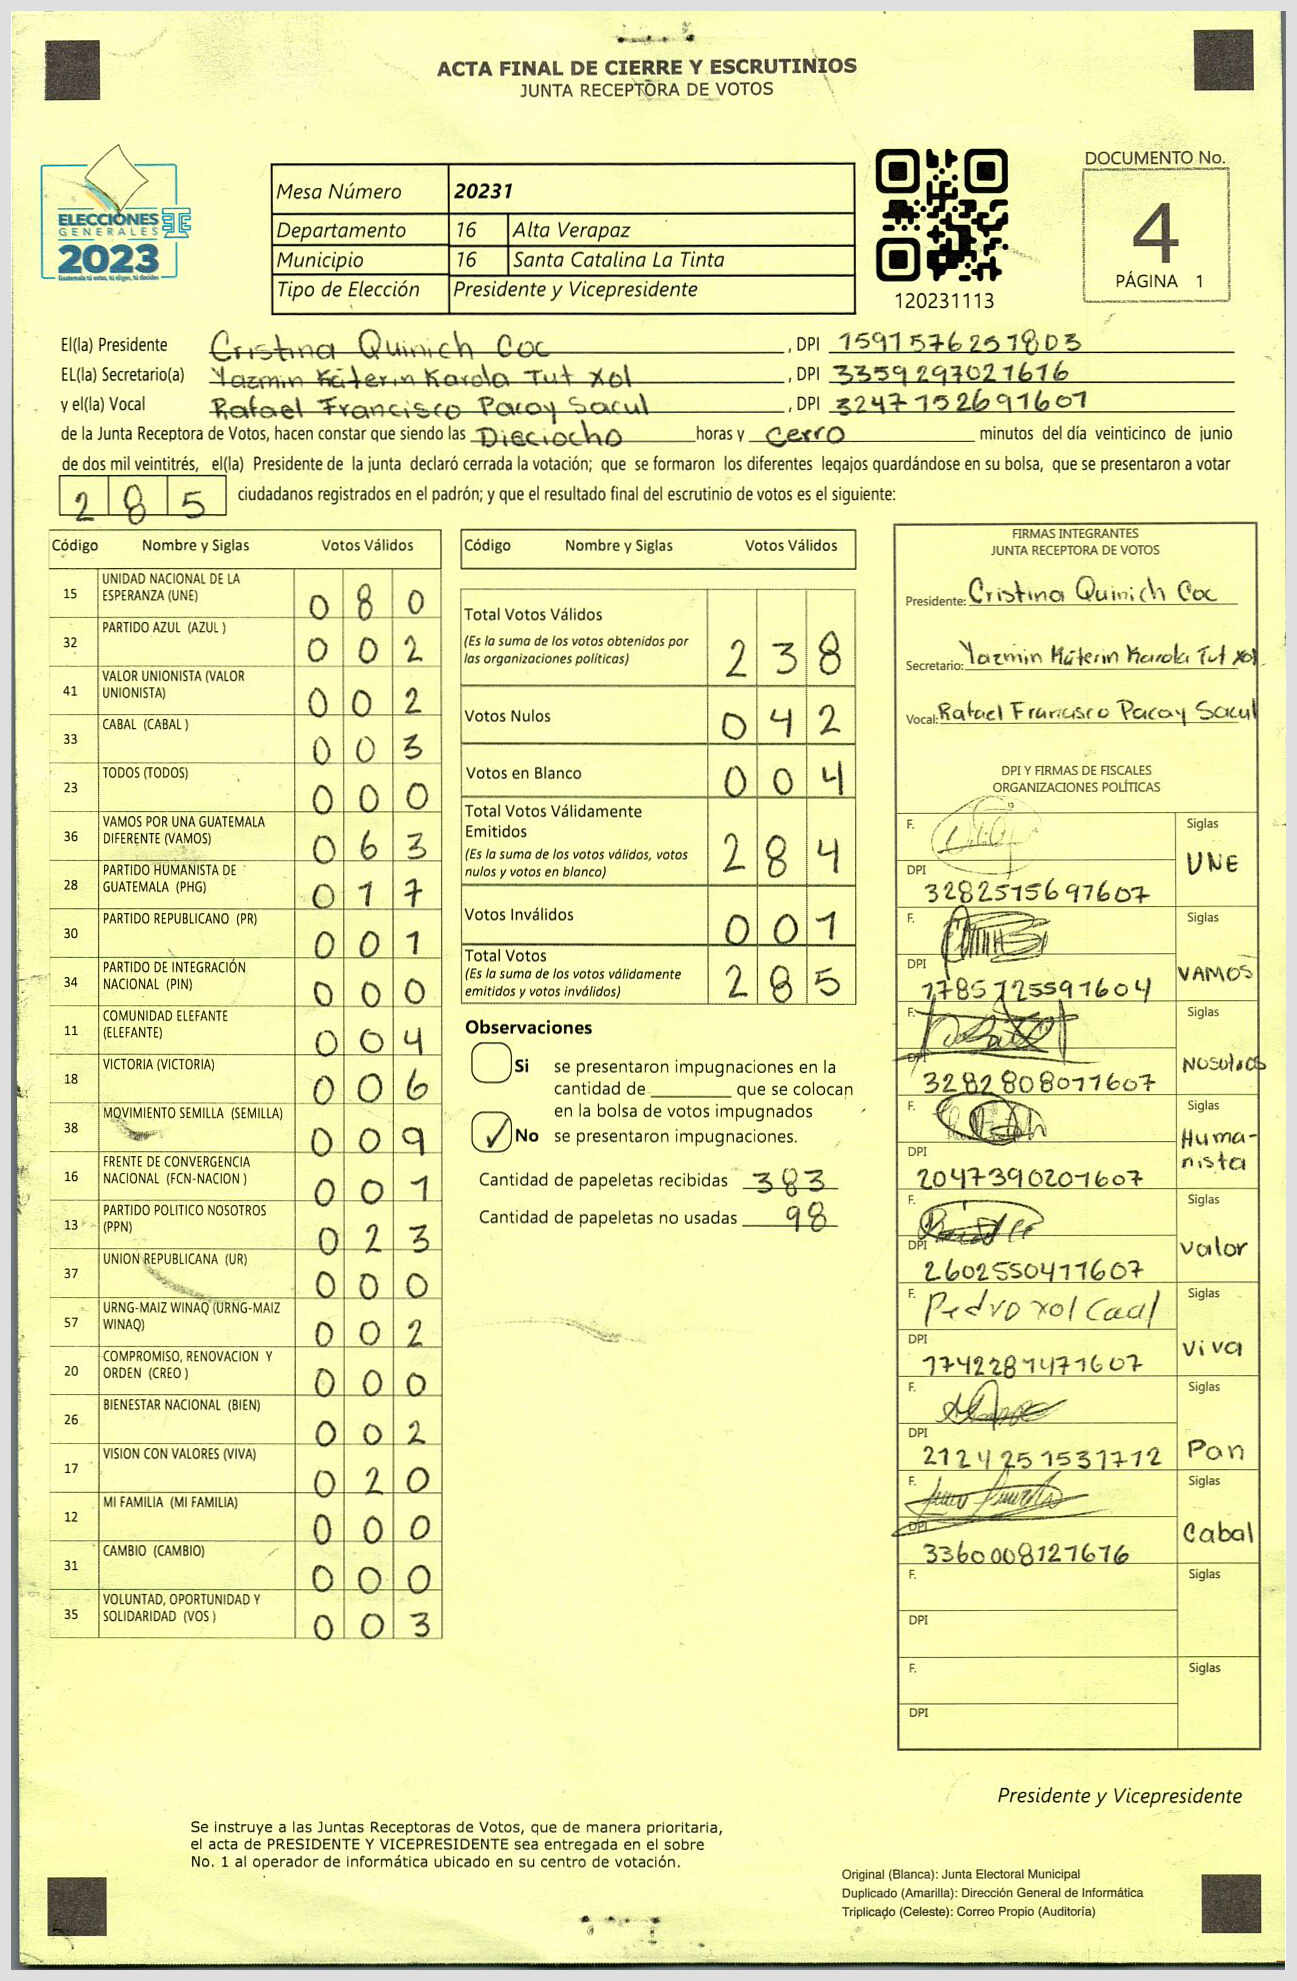 ACTA FINAL DE CIERRE Y ESCRUTINIOS
JUNTA RECEPTORA DE VOTOS
ELECCIONES
GENERALES
2023
Mesa Número 20231
Departamento 16 Alta Verapaz
Municipio 16 Santa Catalina La Tinta
Tipo de Elección Presidente y Vicepresidente
120231113
DOCUMENTO No.
4
PÁGINA 1
El(la) Presidente Cristina Quinich Coc, DPI 1591576251803
EL(la) Secretario(a) Yazmin Káterin Karola Tut Xol, DPI 3359297021616
y el(la) Vocal Rafael Francisco Pacay Sacul, DPI 3247152691601
de la Junta Receptora de Votos, hacen constar que siendo las Dieciocho horas y cerro minutos del día veinticinco de junio
de dos mil veintitrés, el(la) Presidente de la junta declaró cerrada la votación; que se formaron los diferentes legajos guardándose en su bolsa, que se presentaron a votar
285 ciudadanos registrados en el padrón; y que el resultado final del escrutinio de votos es el siguiente:
Código Nombre y Siglas Votos Válidos
15 UNIDAD NACIONAL DE LA ESPERANZA (UNE) 0 8 0
32 PARTIDO AZUL (AZUL ) 0 0 2
41 VALOR UNIONISTA (VALOR UNIONISTA) 0 0 2
33 CABAL (CABAL ) 0 0 3
23 TODOS (TODOS) 0 0 0
36 VAMOS POR UNA GUATEMALA DIFERENTE (VAMOS) 0 6 3
28 PARTIDO HUMANISTA DE GUATEMALA (PHG) 0 1 7
30 PARTIDO REPUBLICANO (PR) 0 0 1
34 PARTIDO DE INTEGRACIÓN NACIONAL (PIN) 0 0 0
11 COMUNIDAD ELEFANTE (ELEFANTE) 0 0 4
18 VICTORIA (VICTORIA) 0 0 6
38 MOVIMIENTO SEMILLA (SEMILLA) 0 0 9
16 FRENTE DE CONVERGENCIA NACIONAL (FCN-NACION ) 0 0 1
13 PARTIDO POLITICO NOSOTROS (PPN) 0 2 3
37 UNION REPUBLICANA (UR) 0 0 0
57 URNG-MAIZ WINAQ (URNG-MAIZ WINAQ) 0 0 2
20 COMPROMISO, RENOVACION Y ORDEN (CREO ) 0 0 0
26 BIENESTAR NACIONAL (BIEN) 0 0 2
17 VISION CON VALORES (VIVA) 0 2 0
12 MI FAMILIA (MI FAMILIA) 0 0 0
31 CAMBIO (CAMBIO) 0 0 0
35 VOLUNTAD, OPORTUNIDAD Y SOLIDARIDAD (VOS ) 0 0 3
Código Nombre y Siglas Votos Válidos
Total Votos Válidos 2 3 8
(Es la suma de los votos obtenidos por
las organizaciones políticas)
Votos Nulos 0 4 2
Votos en Blanco 0 0 4
Total Votos Válidamente
Emitidos 2 8 4
(Es la suma de los votos válidos, votos
nulos y votos en blanco)
Votos Inválidos 0 0 1
Total Votos 2 8 5
(Es la suma de los votos válidamente
emitidos y votos inválidos)
Observaciones
Si se presentaron impugnaciones en la
cantidad de ________ que se colocan
en la bolsa de votos impugnados
✓ No se presentaron impugnaciones.
Cantidad de papeletas recibidas 383
Cantidad de papeletas no usadas 98
FIRMAS INTEGRANTES
JUNTA RECEPTORA DE VOTOS
Presidente: Cristina Quinich Coc
Secretario: Yazmin Káterin Karola Tut Xol
Vocal: Rafael Francisco Pacay Sacul
DPI Y FIRMAS DE FISCALES
ORGANIZACIONES POLÍTICAS
F. Siglas
DPI 3282515691607 UNE
F. Siglas
DPI 1785725591604 VAMOS
F. Siglas
DPI 3282808011607 NOSOtROS
F. Siglas
DPI 2047390201607 Humanista
F. Siglas
DPI 2602550411607 valor
F. Pedro xol Caal Siglas
DPI 1742281471607 viva
F. Siglas
DPI 2124251531712 Pan
F. Siglas
DPI 3360008121616 Cabal
F. Siglas
DPI
F. Siglas
DPI
Presidente y Vicepresidente
Se instruye a las Juntas Receptoras de Votos, que de manera prioritaria,
el acta de PRESIDENTE Y VICEPRESIDENTE sea entregada en el sobre
No. 1 al operador de informática ubicado en su centro de votación.
Original (Blanca): Junta Electoral Municipal
Duplicado (Amarilla): Dirección General de Informática
Triplicado (Celeste): Correo Propio (Auditoría)